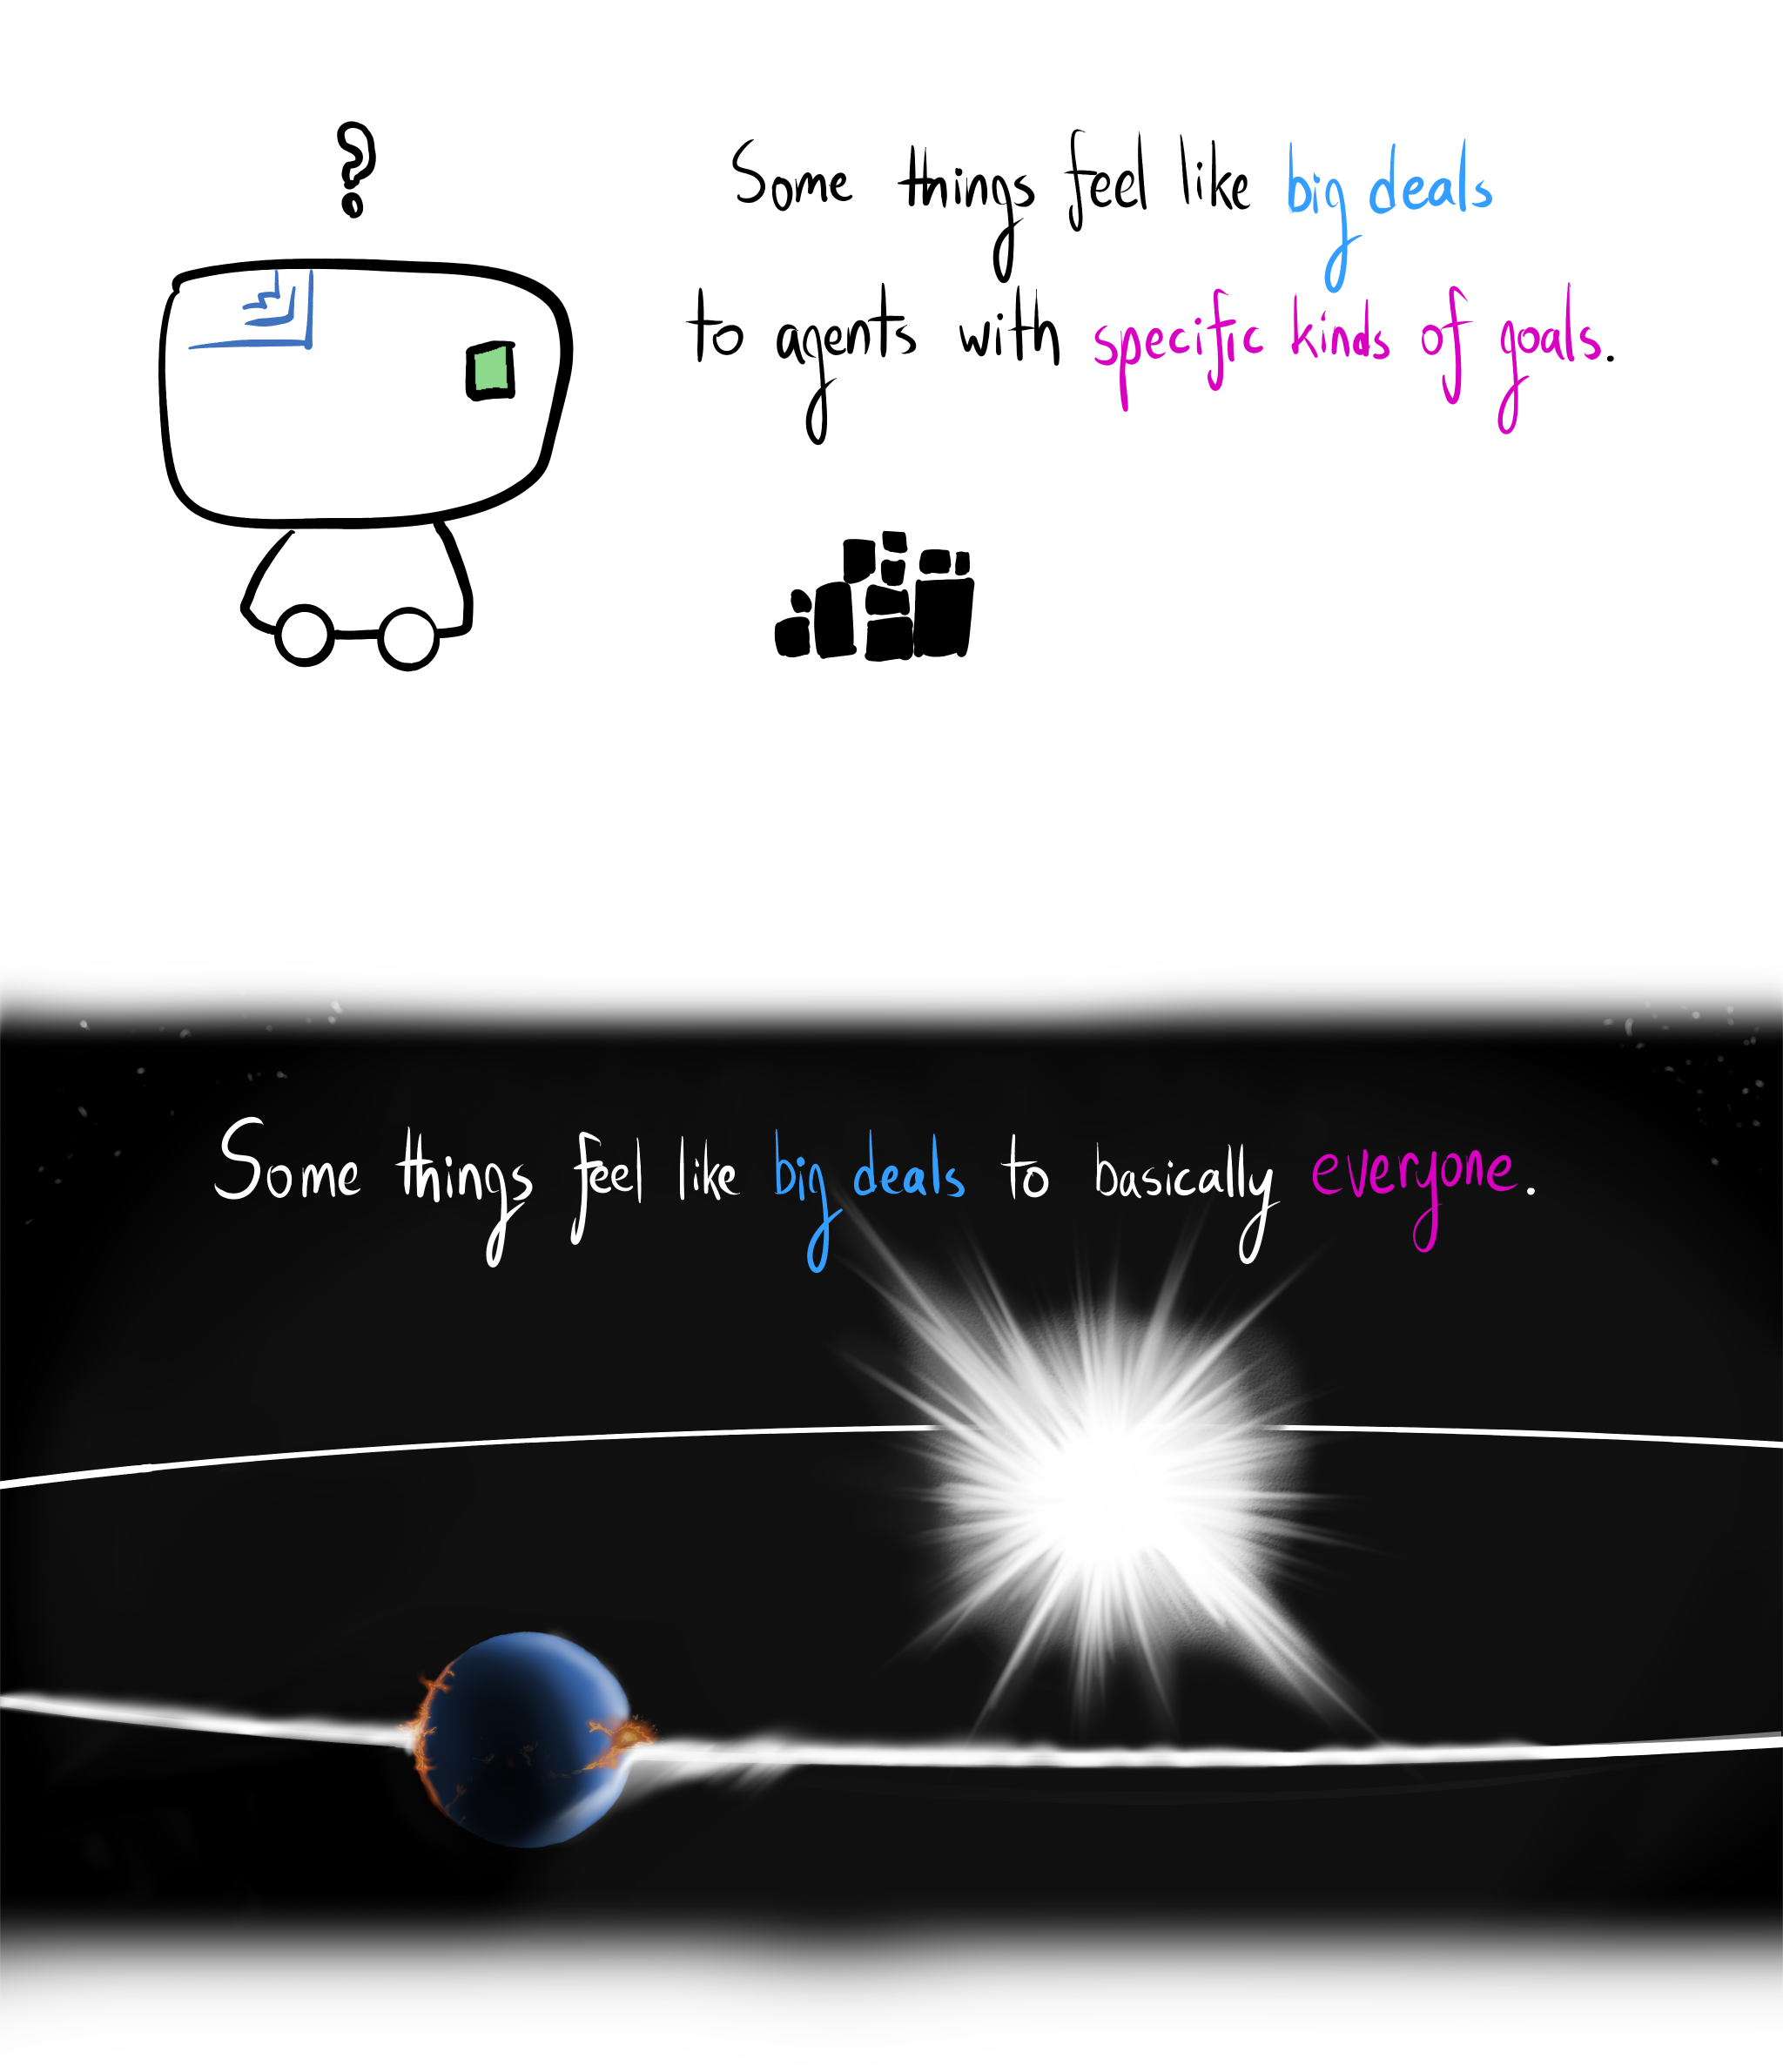 ?
Some things feel like big deals
to agents with specific kinds of goals.
Some things feel like big deals to basically everyone.